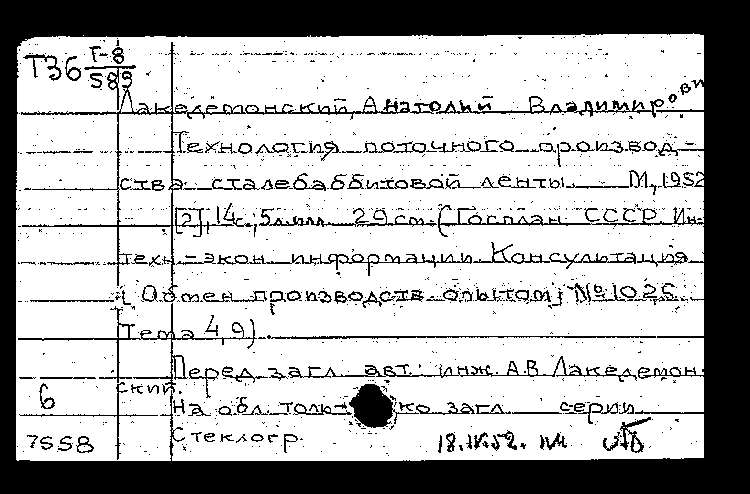 Т36 Г-8
589
Лакедемонский, Анатолий Владимирови
Технология поточного производ-
ства сталебаббитовой ленты. М, 1952
[2], 14 с., 5 л. илл. 29 см. (Госплан СССР. Ин-
техн-экон. информации. Консультация
[Обмен производств. опытом] № 1026.
Тема 4, 9)
Перед загл. авт.: инж. А.В. Лакедемон-
ский.
6 На обл. только загл. серии
7558 Стеклогр. 18.IX.52.